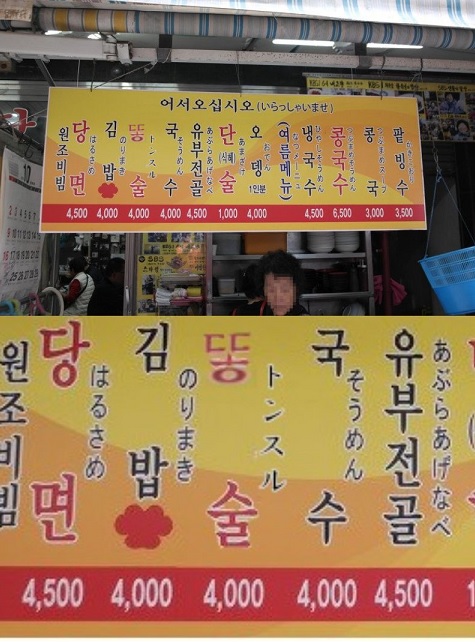 어서오십시오(いらっしゃいませ)
원조비빔
당면
はるさめ
김밥
のりまき
똥술
トンスル
국수
そうめん
유부전골
あぶらあげなべ
단술
(식혜)
あまざけ
오뎅
おでん
1인분
(여름메뉴)
냉국수
콩국수
콩국
팥빙수
4,500
4,000
4,000
4,000
4,500
1,000
4,000
4,500
6,500
3,000
3,500
원조비빔
당면
はるさめ
김밥
のりまき
똥술
トンスル
국수
そうめん
유부전골
あぶらあげなべ
4,500
4,000
4,000
4,000
4,500